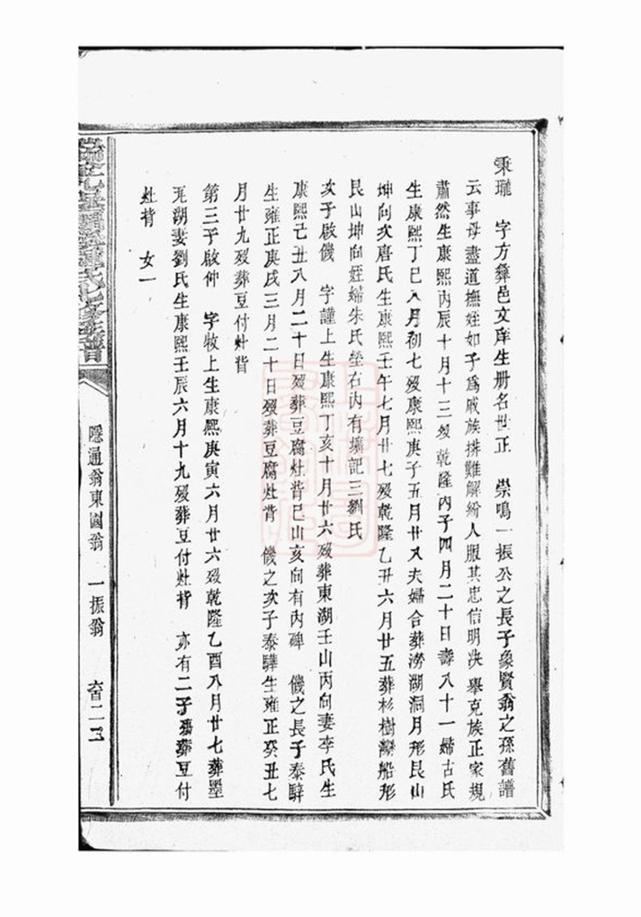 秉璀 字方彝邑文庠生册名世正 崇鳴一振公之長子象賢翁之孫舊譜
云事母盡道撫姪如子爲戚族排難解紛人服其忠信明决舉克族正家規
肅然生康熙丙辰十月十三歿乾隆丙子四月二十日壽八十一婦古氏
生康熙丁巳八月初七歿康熙庚子五月廿又夫婦合葬澇湖洞月形艮山
坤向次唐氏生康熙壬午七月廿七歿乾隆乙丑六月廿五葬杉樹灣船形
艮山坤向姪婦朱氏坐右內有壙記三劉氏
次子啟儀 字謹上生康熙丁亥十月廿六歿葬東湖壬山丙向妻李氏生
康熙己丑八月二十日歿葬豆腐灶背巳山亥向有內碑 儀之長子泰騂
生雍正庚戌三月二十日歿葬豆腐灶背 儀之次子泰驊生雍正癸丑七
月廿九歿葬豆付灶背
第三子啟仲 字牧上生康熙庚寅六月廿六歿乾隆乙酉八月廿七葬墨
湖妻劉氏生康熙壬辰六月十九歿葬豆付灶背 亦有二子葬豆付
灶背 女一
隱通翁東國翁 一振翁 六百二十三